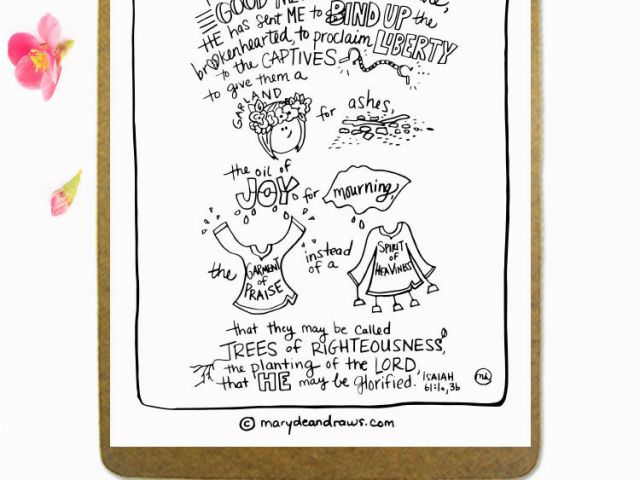 GOOD
HE has sent ME to BIND UP the
brokenhearted, to proclaim LIBERTY
to the CAPTIVES
to give them a
GARLAND for ashes,
the oil of
JOY for mourning,
the GARMENT of PRAISE instead of a SPIRIT of HEAVINESS
that they may be called
TREES of RIGHTEOUSNESS,
the planting of the LORD,
that HE may be glorified. ISAIAH
61:1a, 3b
© marydeandraws.com